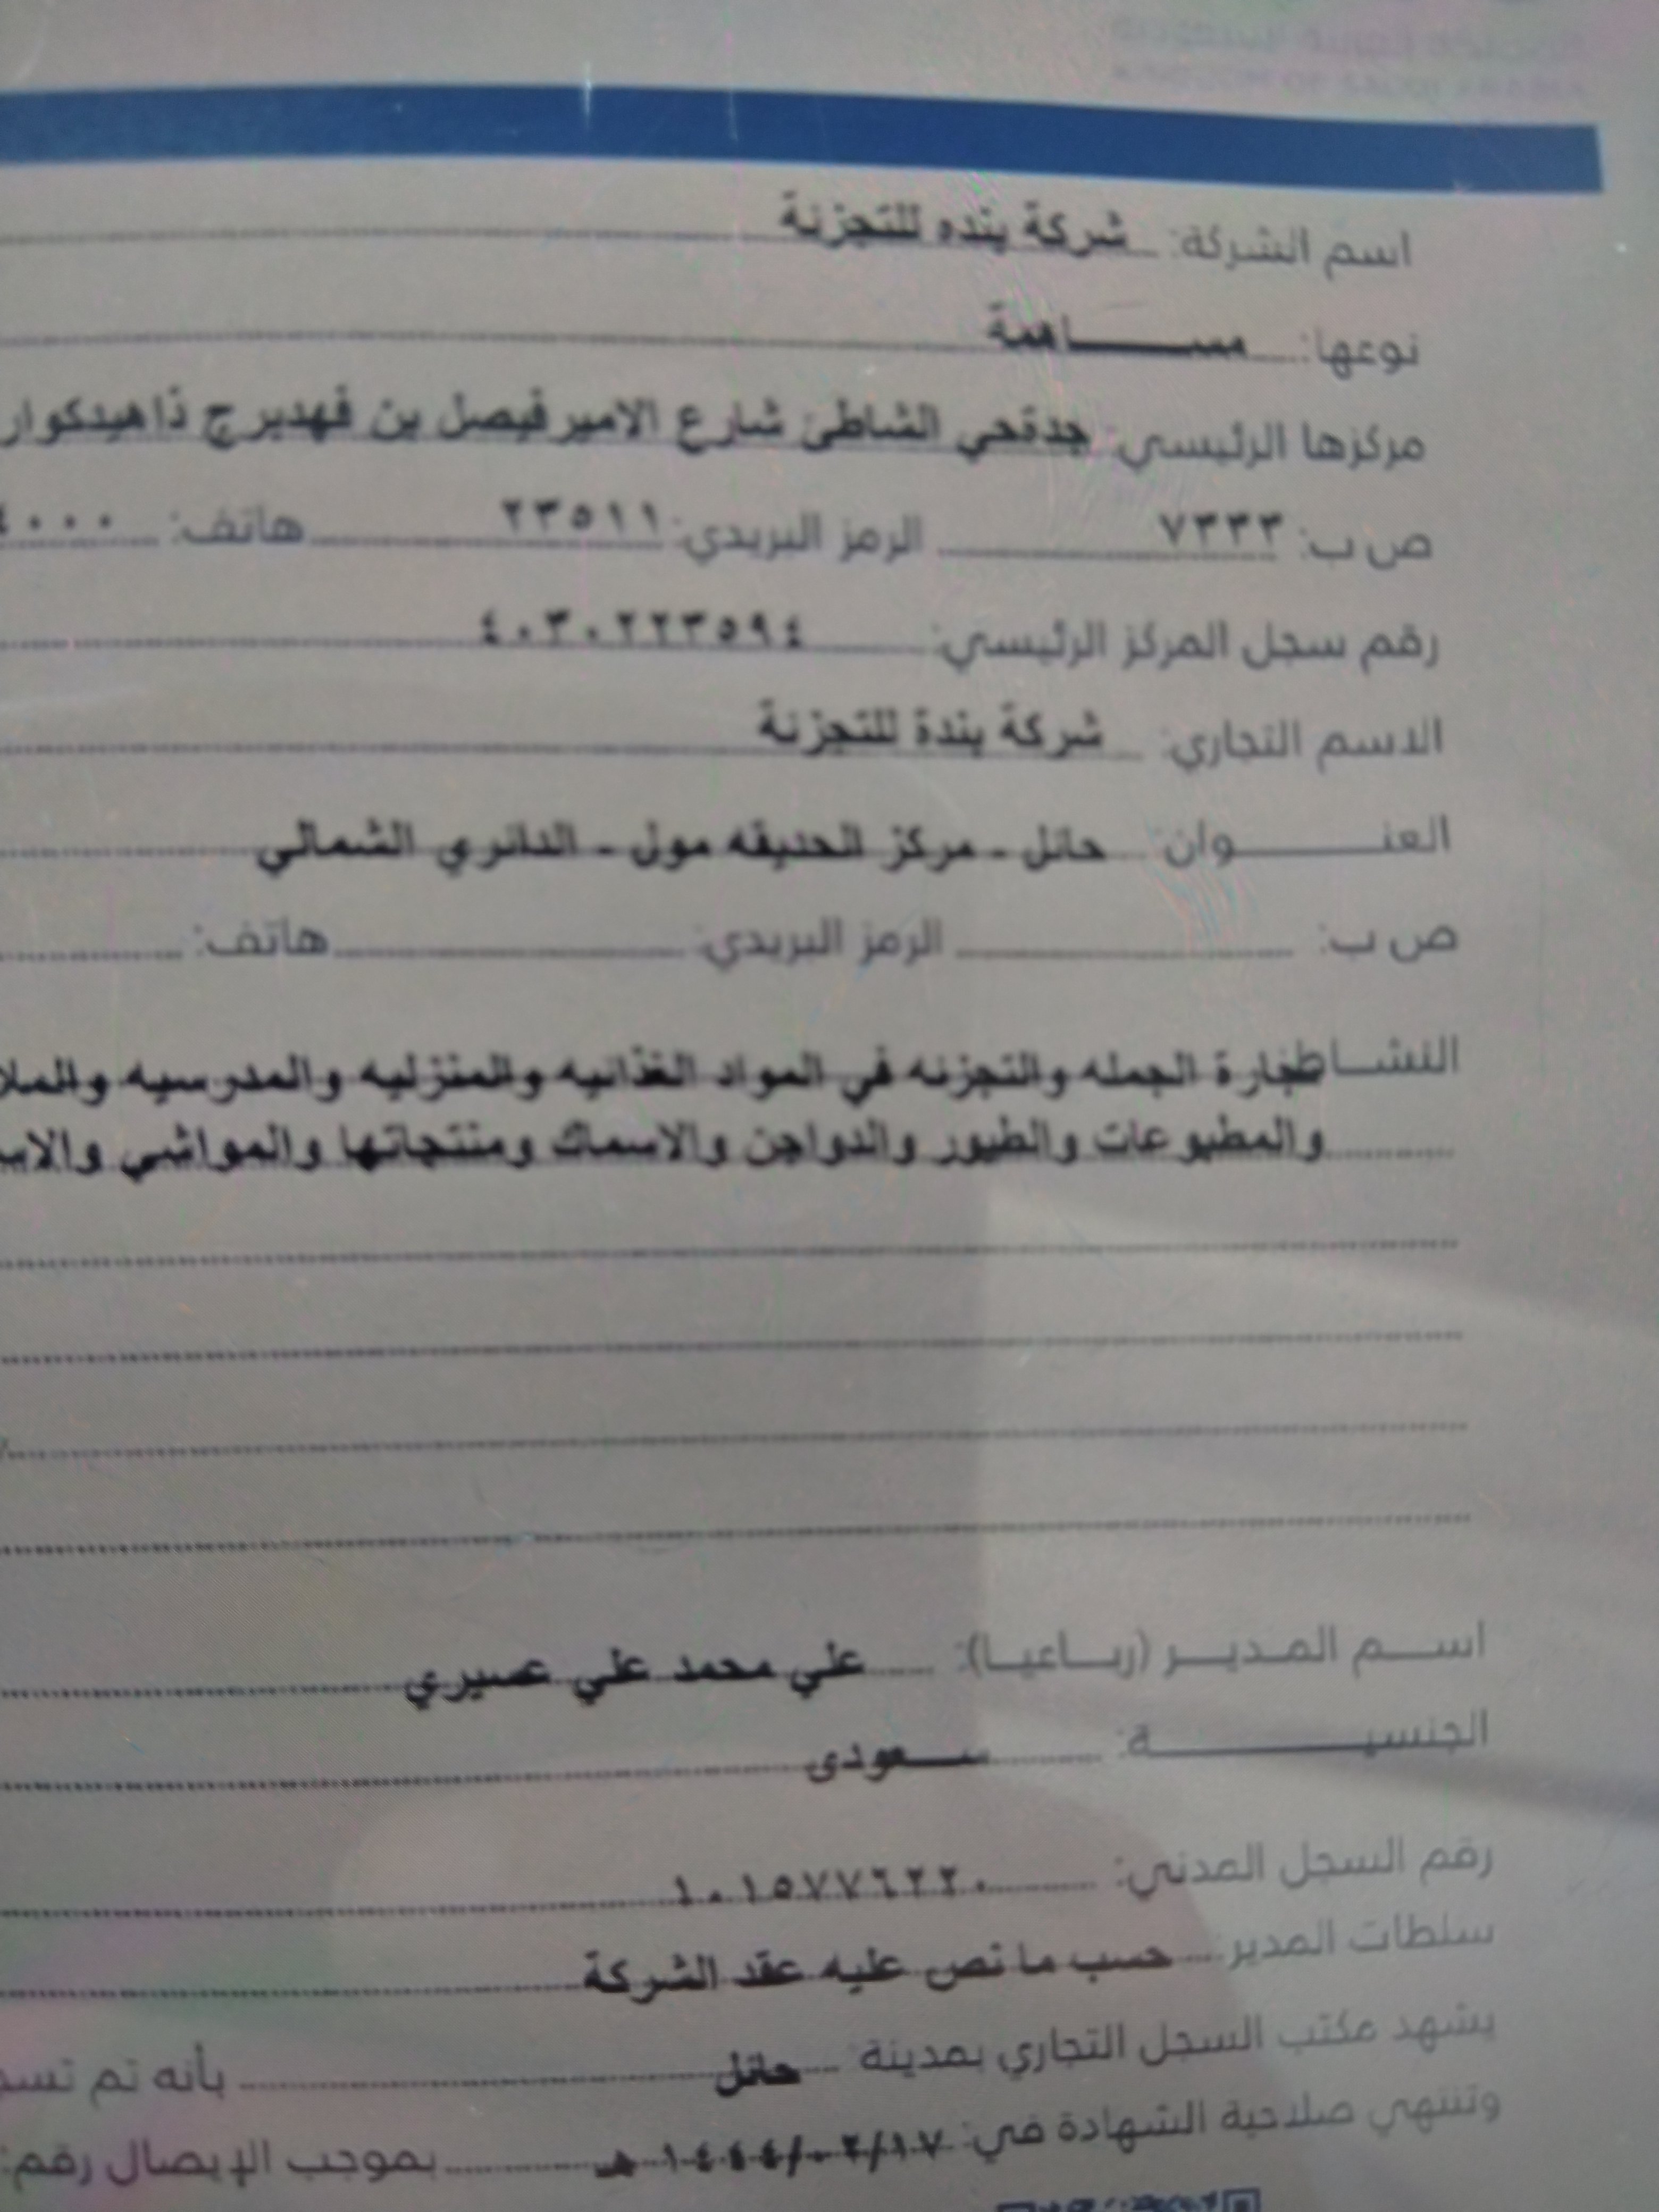 المملكة العربية السعودية
KINGDOM OF SAUDI ARABIA
اسم الشركة: شركة بنده للتجزئة
نوعها: مساهمة
مركزها الرئيسي: جدةحي الشاطئ شارع الاميرفيصل بن فهدبرج ذاهيدكوار
ص ب: ٧٣٣٣ الرمز البريدي: ٢٣٥١١ هاتف: ٤٠٠٠
رقم سجل المركز الرئيسي: ٤٠٣٠٢٢٣٥٩٤
الاسم التجاري: شركة بندة للتجزئة
العنوان: حائل - مركز الحديقه مول - الدائري الشمالي
ص ب: الرمز البريدي: هاتف:
النشاط تجارة الجمله والتجزئه في المواد الغذائيه والمنزليه والمدرسيه والملا
والمطبوعات والطيور والدواجن والاسماك ومنتجاتها والمواشي والاس
اسم المدير (رباعيا): علي محمد علي عصيري
الجنسية: سعودى
رقم السجل المدني: ١٠١٥٧٧٦٢٢٠
سلطات المدير: حسب ما نص عليه عقد الشركة
يشهد مكتب السجل التجاري بمدينة حائل بأنه تم تسج
وتنتهي صلاحية الشهادة في: ١٤٤٤/٠٢/١٧ هـ بموجب الإيصال رقم: